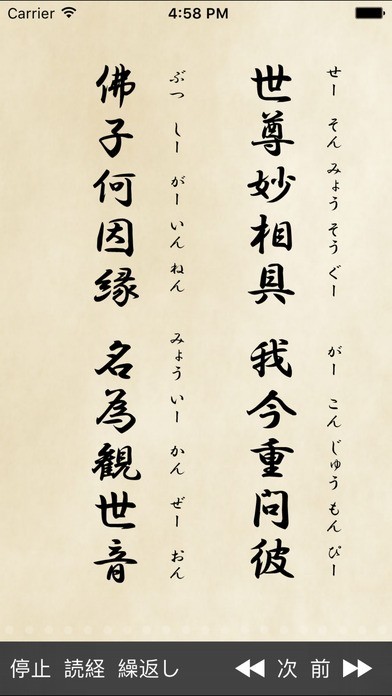 Carrier 4:58 PM
せー そん みょう そうぐー がー こん じゅう もん ぴー
世尊妙相具 我今重問彼
ぶつ しー がー いん ねん みょう いー かん ぜー おん
佛子何因縁 名為觀世音
停止 読経 繰返し 次 前